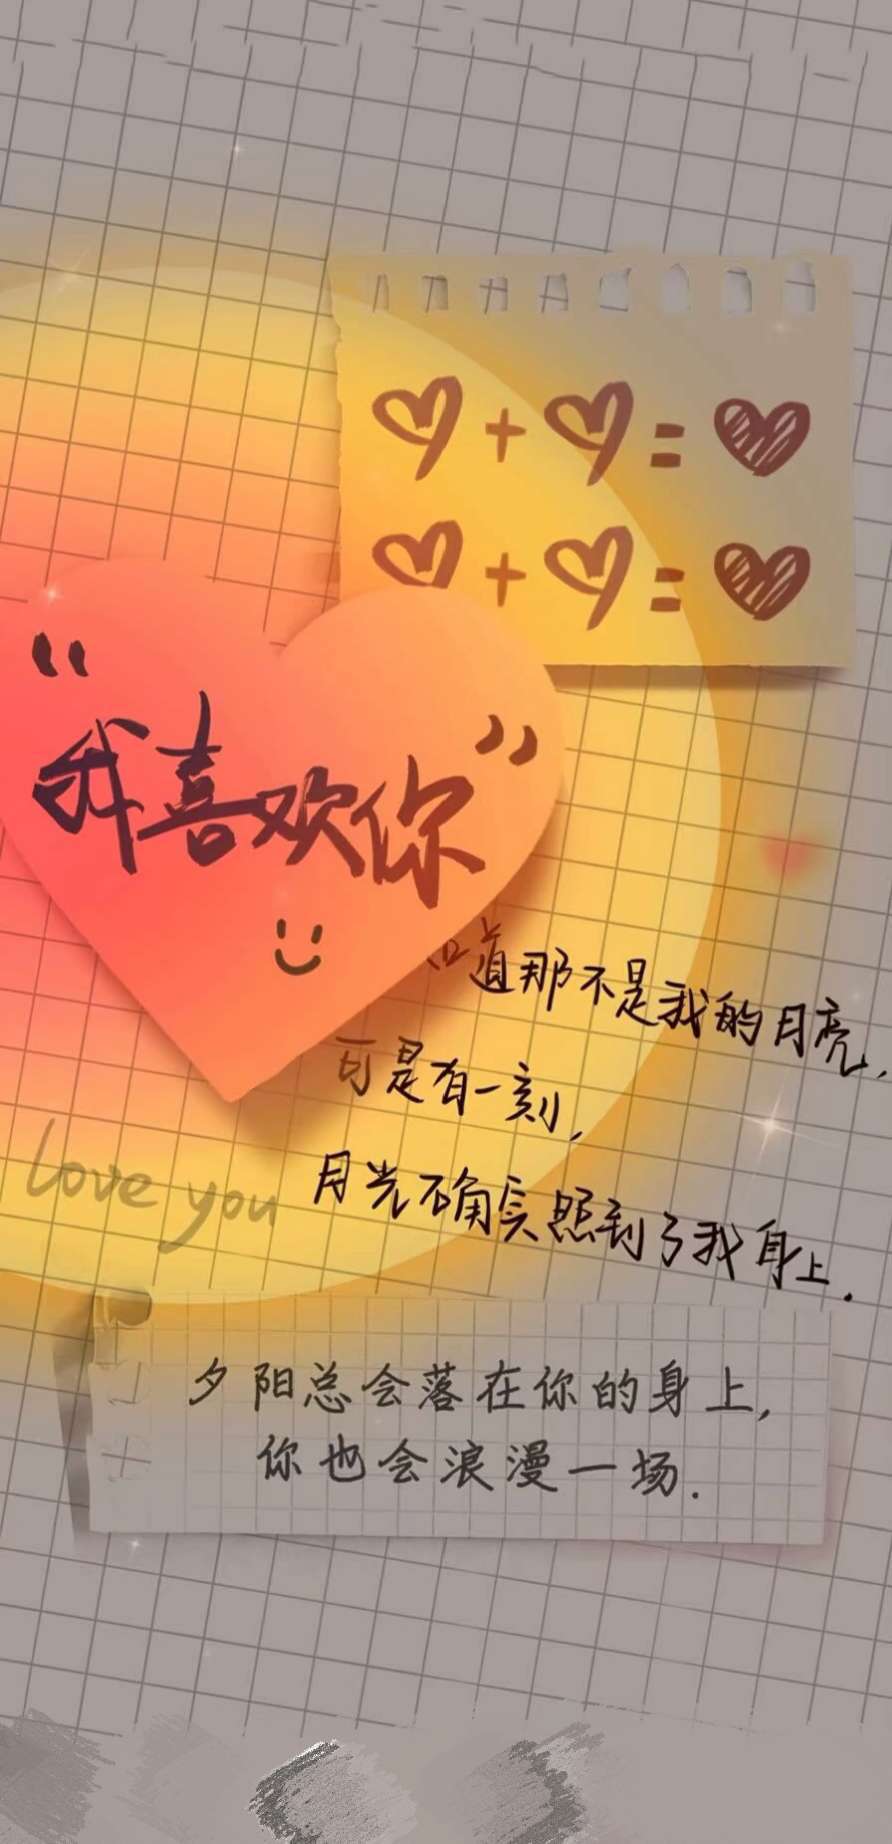 “我喜欢你”
道那不是我的月亮,
可是有一刻,
月光确实照到了我身上.
love you
夕阳总会落在你的身上,
你也会浪漫一场.